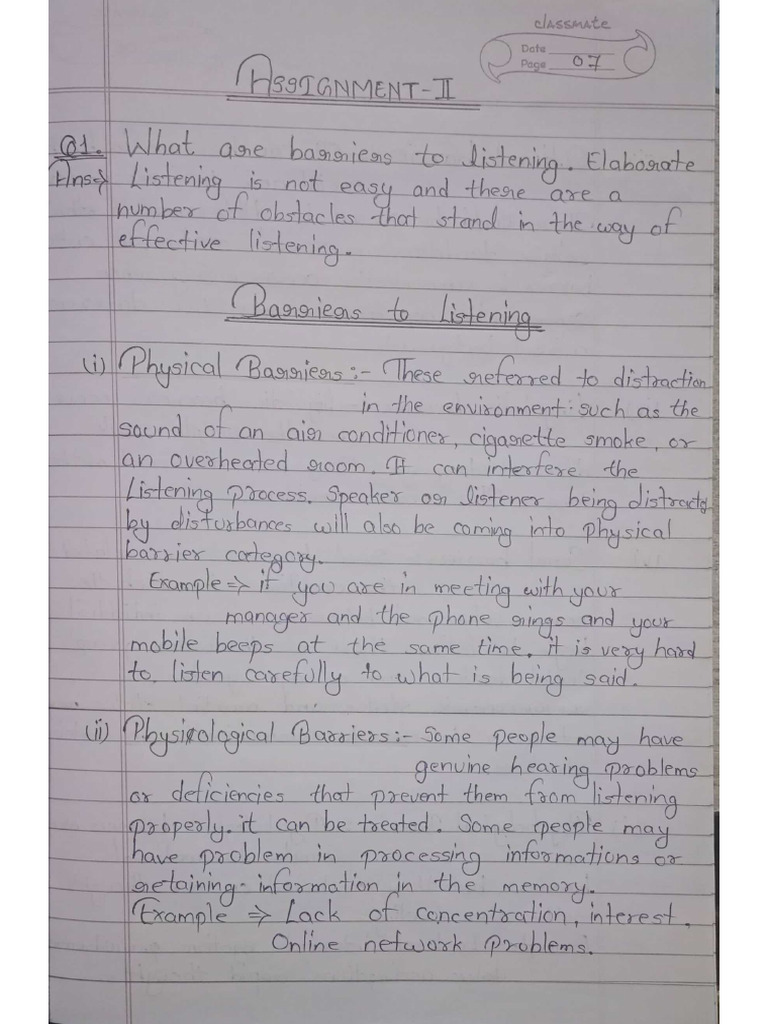 classmate
Date
Page 07
ASSIGNMENT-II
Q1. What are barriers to listening. Elaborate
Ans⇒ Listening is not easy and there are a
number of obstacles that stand in the way of
effective listening.
Barriers to Listening
(i) Physical Barriers:- These referred to distraction
in the environment such as the
sound of an air conditioner, cigarette smoke, or
an overheated room. It can interfere the
Listening process. Speaker or listener being distracted
by disturbances will also be coming into physical
barrier category.
Example ⇒ if you are in meeting with your
manager and the phone rings and your
mobile beeps at the same time, it is very hard
to listen carefully to what is being said.
(ii) Physiological Barriers:- Some people may have
genuine hearing problems
or deficiencies that prevent them from listening
properly. it can be treated. Some people may
have problem in processing informations or
retaining information in the memory.
Example ⇒ Lack of concentration, interest,
Online network problems.